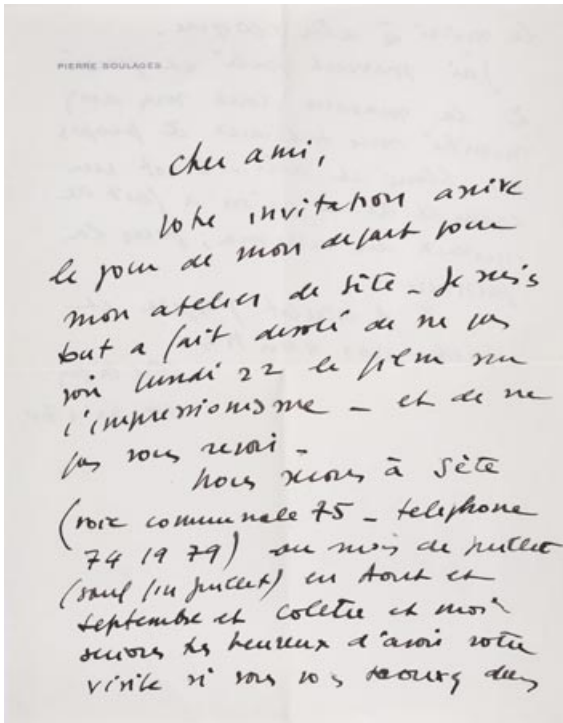 PIERRE SOULAGES
cher ami,
votre invitation arrive
le jour de mon depart pour
mon atelier de Sète - Je suis
tout a fait desolé de ne pas
voir lundi 22 le film sur
l'impressionisme - et de ne
pas vous revoir -
Nous serons à Sète
(voie communale 75 - telephone
74 19 79) au mois de juillet
(sauf fin juillet) en Aout et
septembre et Colette et moi
serions tres heureux d'avoir votre
visite si vous vous trouvez dans